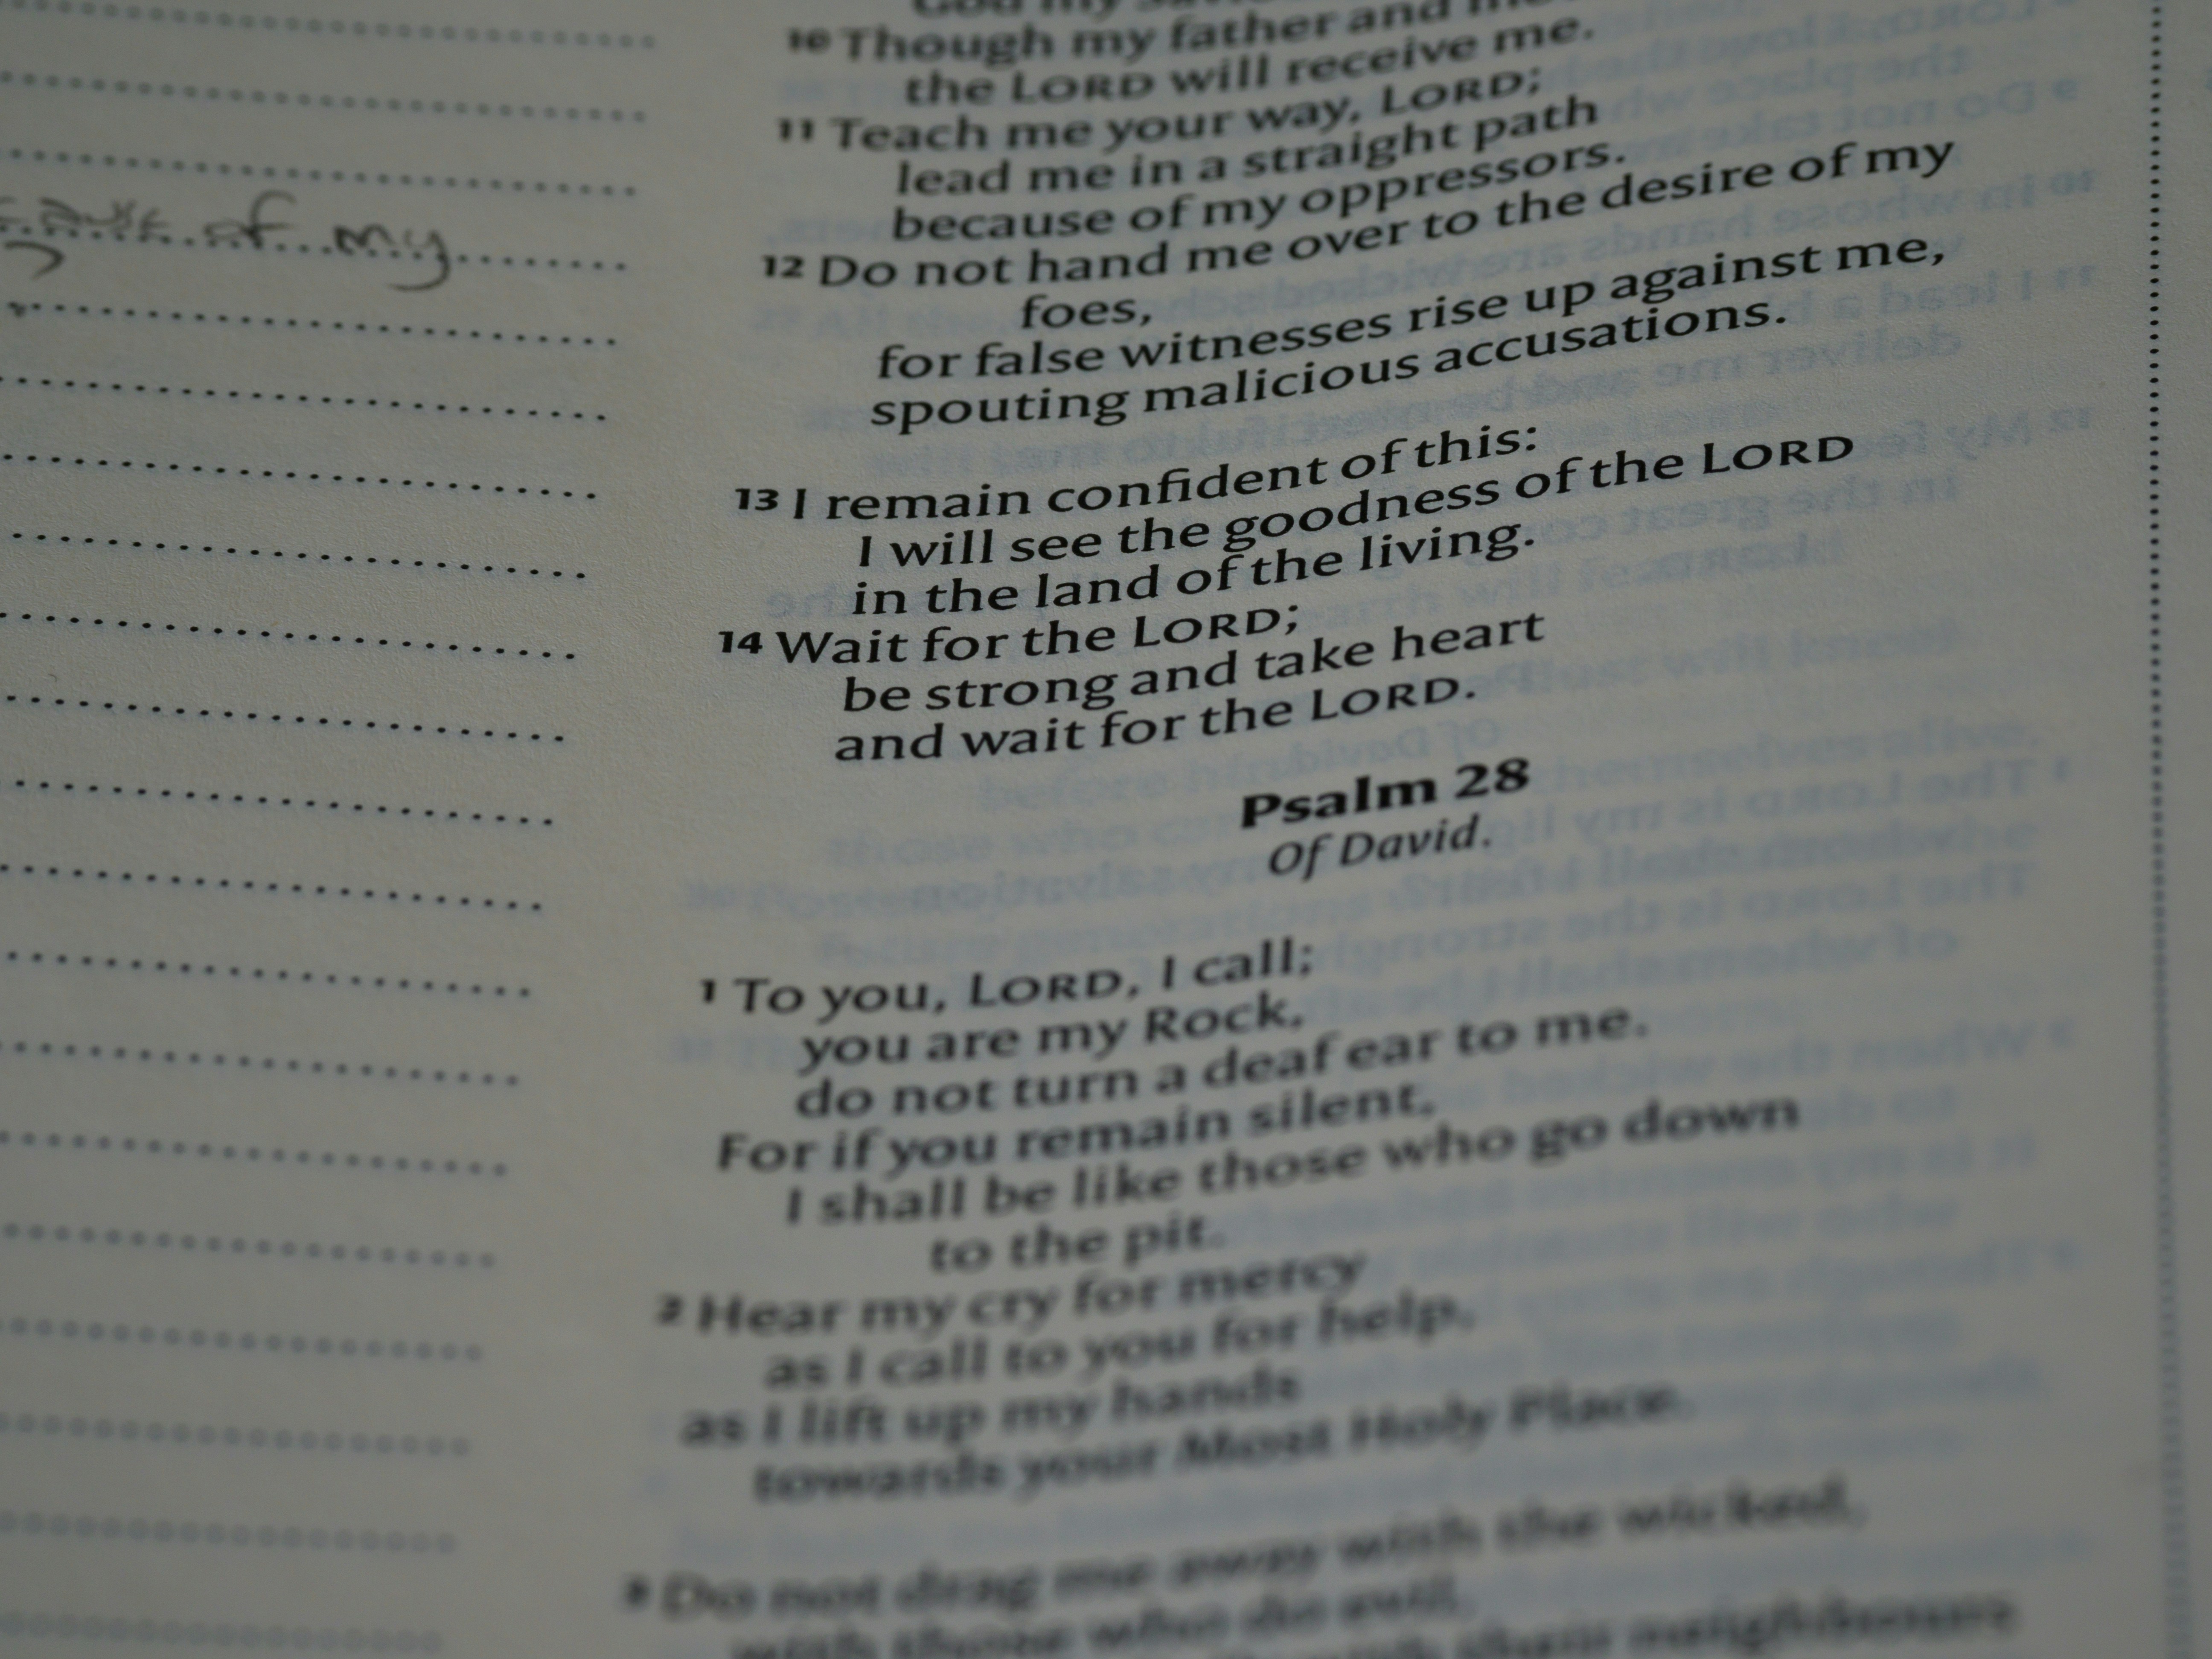 of my
God my
10 Though my father and
the LORD will receive me.
11 Teach me your way, LORD;
lead me in a straight path
because of my oppressors.
12 Do not hand me over to the desire of my
foes,
for false witnesses rise up against me,
spouting malicious accusations.
13 I remain confident of this:
I will see the goodness of the LORD
in the land of the living.
14 Wait for the LORD;
be strong and take heart
and wait for the LORD.
Psalm 28
Of David.
1 To you, LORD, I call;
you are my Rock,
do not turn a deaf ear to me.
For if you remain silent,
I shall be like those who go down
to the pit.
2 Hear my cry for mercy
as I call to you for help,
as I lift up my hands
towards your Most Holy Place.
3 Do not drag me away with the wicked,
with those who do evil,
their neighbours